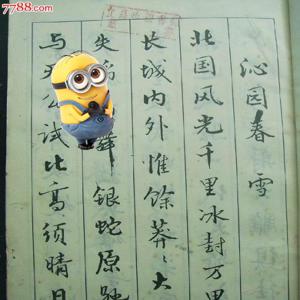 7788.com
沁园春 雪
北国风光千里冰封万里
长城内外惟馀莽〻大
失舞银蛇原驰
与天公试比高须晴日